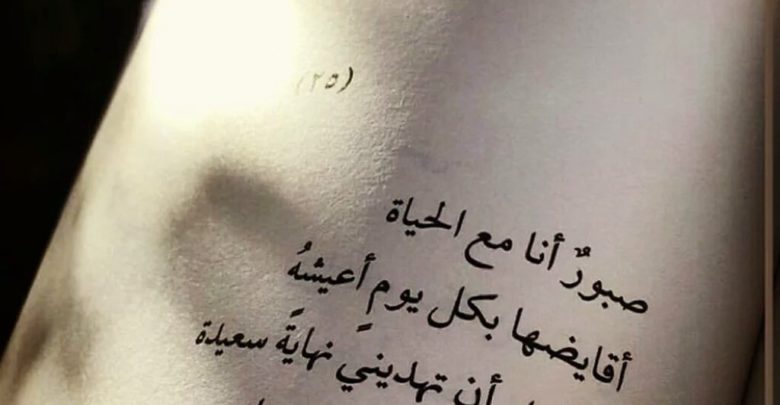 (٢٥)
صبورٌ أنا مع الحياة
أقايضها بكل يومٍ أعيشهُ
أن تهديني نهايةً سعيدة